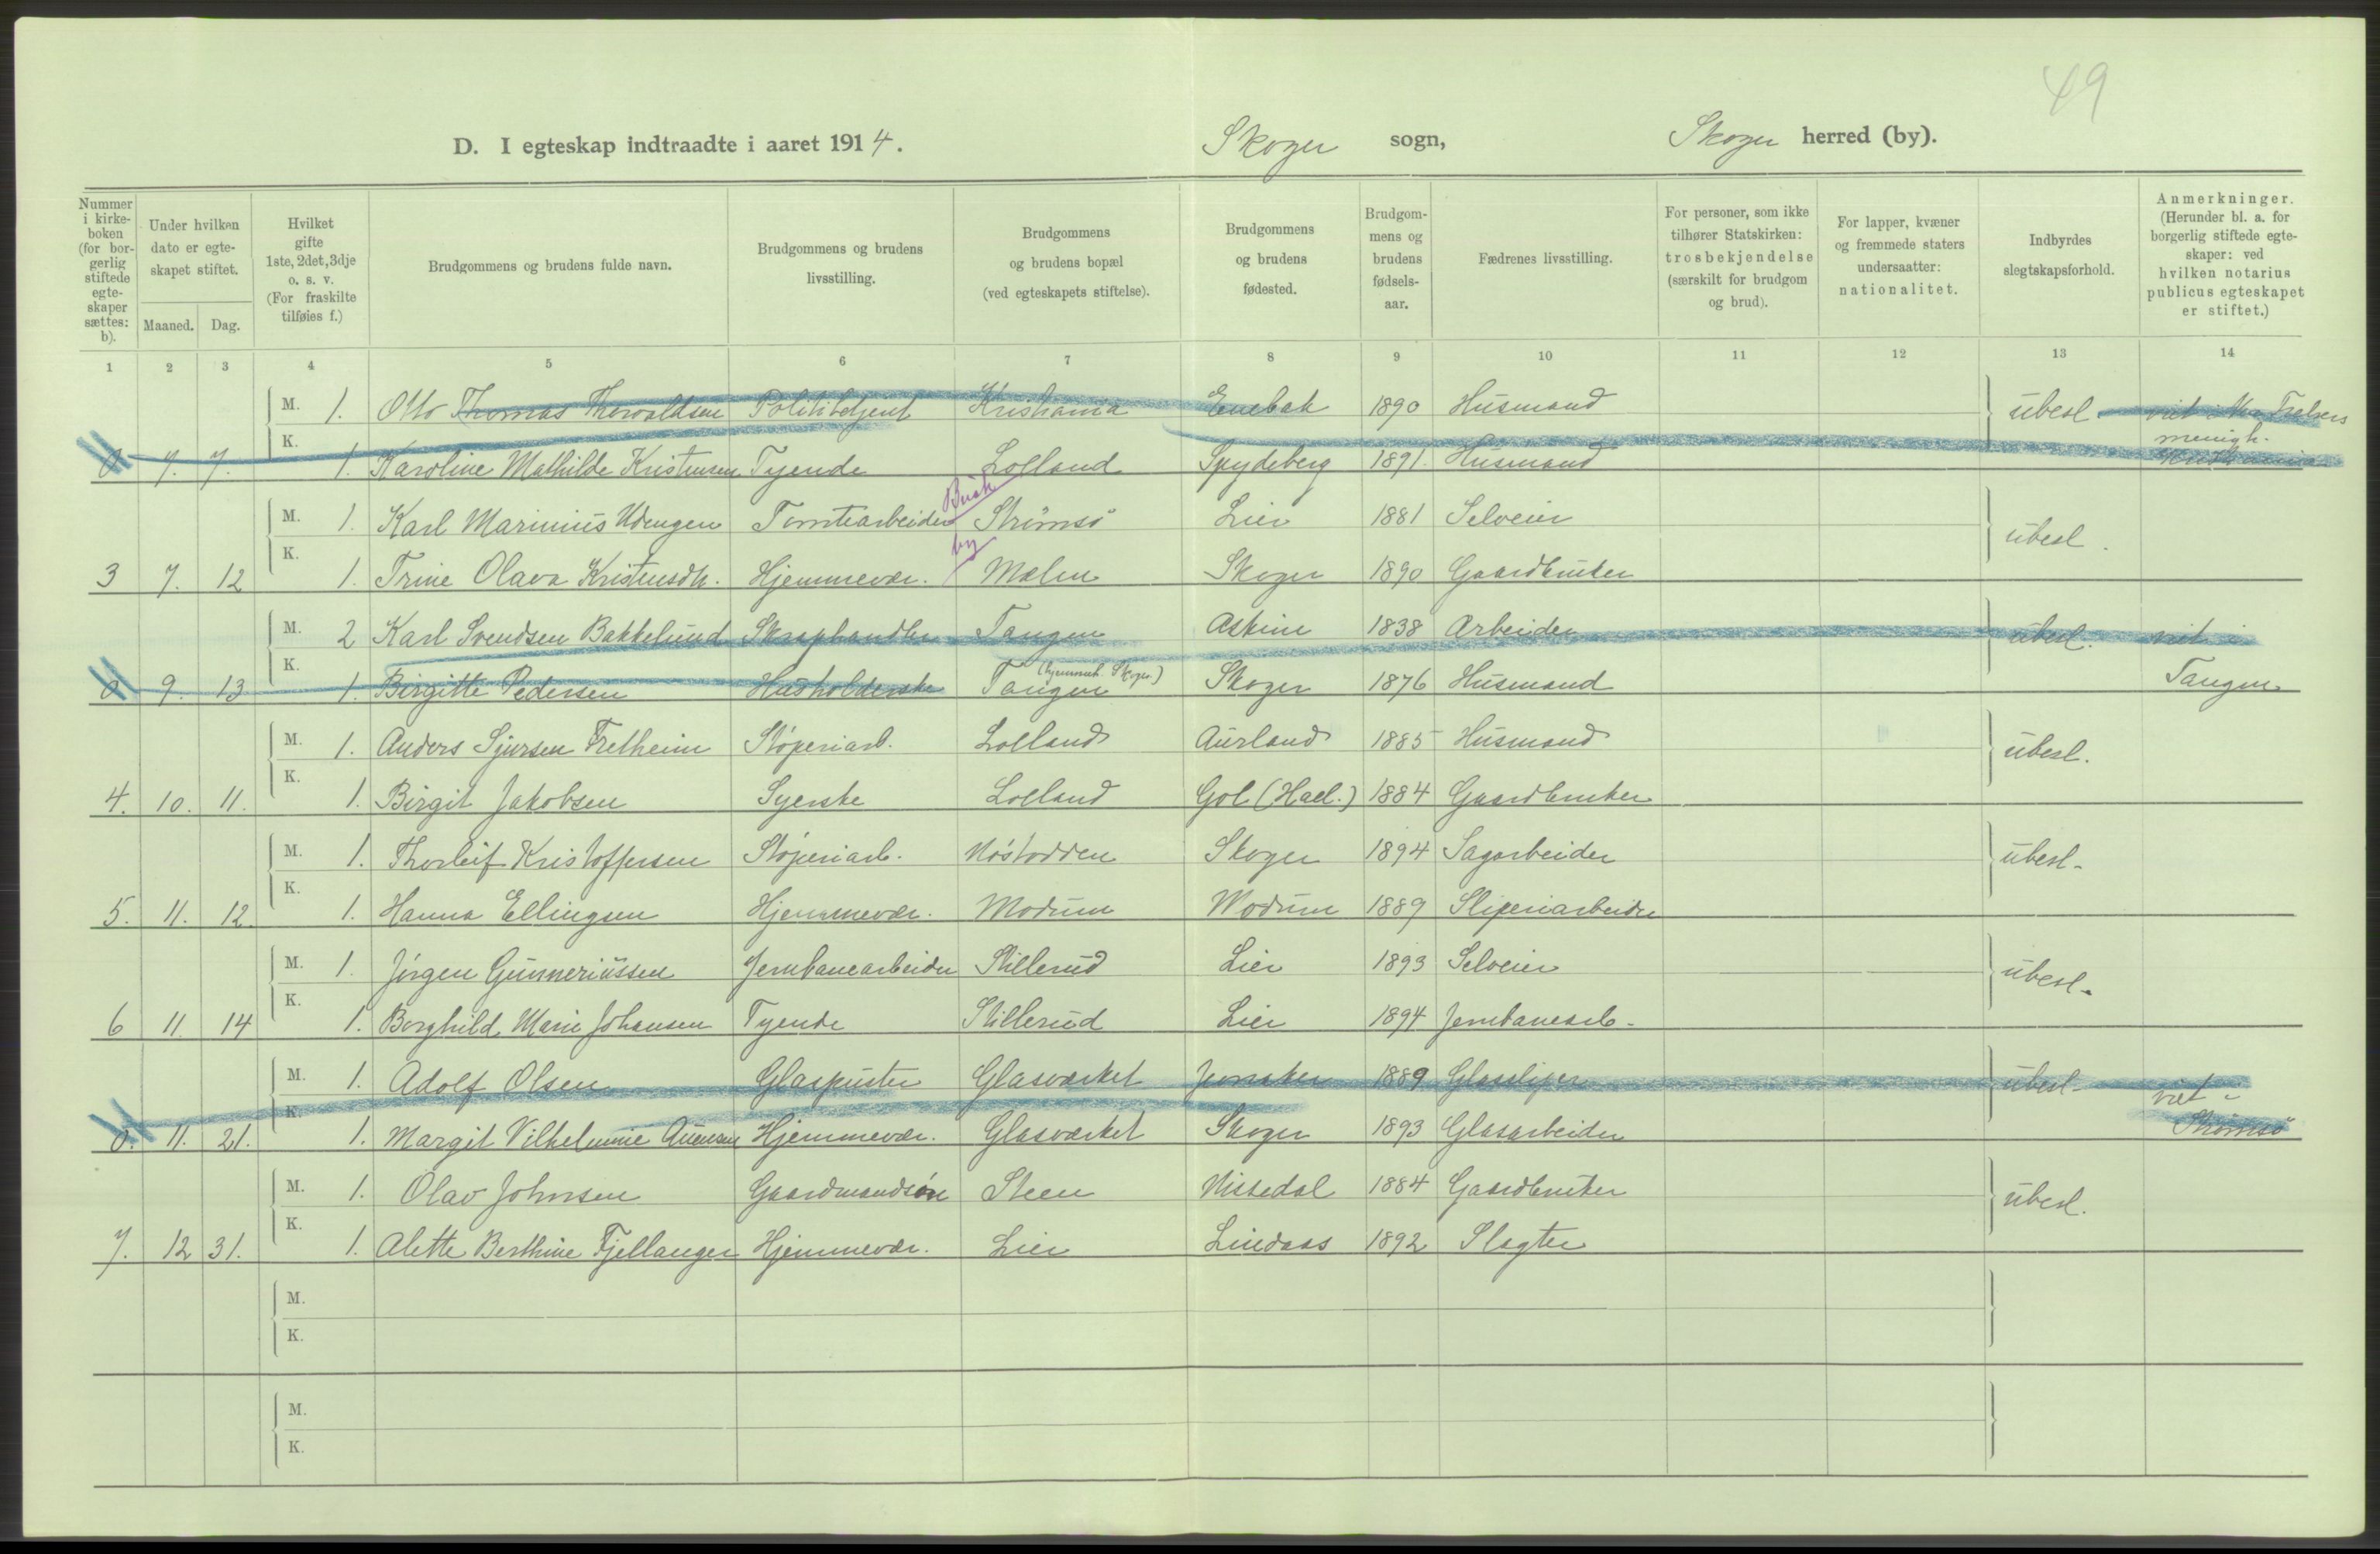 49
D. I egteskap indtraadte i aaret 1914. Skoger sogn, Skoger herred (by).
Nummer i kirkeboken (for borgerlig stiftede egteskaper sættes: b).
Under hvilken dato er egteskapet stiftet.
Maaned. Dag.
Hvilket gifte 1ste, 2det, 3dje o. s. v. (For fraskilte tilføies f.)
Brudgommens og brudens fulde navn.
Brudgommens og brudens livsstilling.
Brudgommens og brudens bopæl (ved egteskapets stiftelse).
Brudgommens og brudens fødested.
Brudgommens og brudens fødselsaar.
Fædrenes livsstilling.
For personer, som ikke tilhører Statskirken: trosbekjendelse (særskilt for brudgom og brud).
For lapper, kvæner og fremmede staters undersaatter: nationalitet.
Indbyrdes slegtskapsforhold.
Anmerkninger. (Herunder bl. a. for borgerlig stiftede egteskaper: ved hvilken notarius publicus egteskapet er stiftet.)
1 2 3 4 5 6 7 8 9 10 11 12 13 14
M. 1. Otto Thomas Thorvaldsen Politibetjent Kristiania Enebak 1890 Husmand ubesl. viet i Vor Frelsers menigh.
0 7. 7. K. 1. Karoline Mathilde Kristensen Tyende Lolland Spydeberg 1891. Husmand Kristiania
M. 1. Karl Marinius Udengen Tomtearbeider Busk Strømsø Lier 1881 Selveier ubesl.
by
3 7. 12 K. 1. Trine Olava Kristensdt. Hjemmevær. Mælen Skoger 1890 Gaardbruker
M. 2 Karl Svendsen Bakkelund Skraphandler Tangen Askim 1838 Arbeider ubesl. viet i
0 9. 13 K. 1. Birgitte Pedersen Husholderske Tangen (hjemmeh. Skoger) Skoger 1876 Husmand Tangen
M. 1. Anders Sjursen Fretheim Støperiarb. Lolland Aurland 1885 Husmand ubesl.
4. 10. 11. K. 1. Birgit Jakobsen Syerske Lolland Gol (Hall.) 1884 Gaardbruker
M. 1. Thorleif Kristoffersen Støperiarb. Nøstodden Skoger 1894 Sagarbeider ubesl.
5. 11. 12. K. 1. Hanna Ellingsen Hjemmevær. Modum Modum 1889 Sliperiarbeider
M. 1. Jørgen Gunneriussen Jernbanearbeider Stillerud Lier 1893 Selveier ubesl.
6 11. 14 K. 1. Borghild Marie Johansen Tyende Stillerud Lier 1894 Jernbanearb.
M. 1. Adolf Olsen Glaspuster Glasværket Jevnaker 1889 Glassliper ubesl. viet i
0. 11. 21. K. 1. Margit Vilhelmine Auensen Hjemmevær. Glasværket Skoger 1893 Glasarbeider Strømsø
M. 1. Olav Johnsen Gaardmandsøn Steen Nissedal 1884 Gaardbruker ubesl.
7. 12 31. K. 1. Alette Berthine Fjellanger Hjemmevær. Lier Lindaas 1892 Slagter
M.
K.
M.
K.